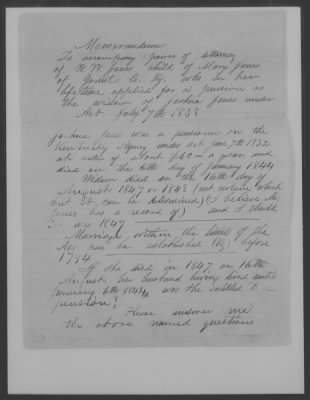 Memorandum
To accompany power of attorney
of W. W. Jones child of Mary Jones
of Grant Co. Ky. who in her
life time applied for a pension as
the widow of Joshua Jones under
Act July 7th 1838
Joshua Jones was a pensioner on the
Kentucky Agency under act June 7th 1832
at rate of about $60 - a year and
died on the 6th day of January 1844
Widow died on the 16th day of
August 1847 or 1848 (not certain which
but it can be determined) (I believe Mr
Jones has a record of) and I think
was 1847
Marriage within the limits of the
Act can be established (Ky) before
1794
If she died in 1847 on 16th
August, her husband having lived until
January 6th 1844, was she entitled to a
pension?
Please answer me
the above named questions